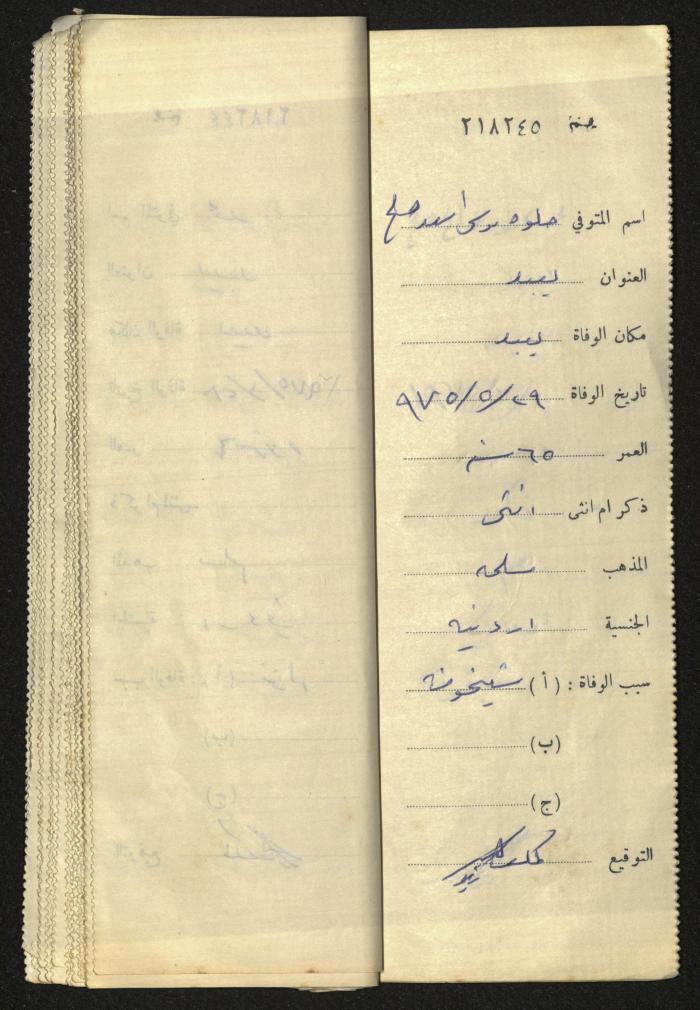 ٢١٨٢٤٥
اسم المتوفي حلوه موسى اسعد صلح
العنوان يعبد
مكان الوفاة يعبد
تاريخ الوفاة ٢٩/٥/٩٧٥
العمر ٦٥ سنه
ذكر ام انثى انثى
المذهب مسلمه
الجنسية اردنيه
سبب الوفاة : (أ) شيخوخه
(ب)
(ج)
التوقيع